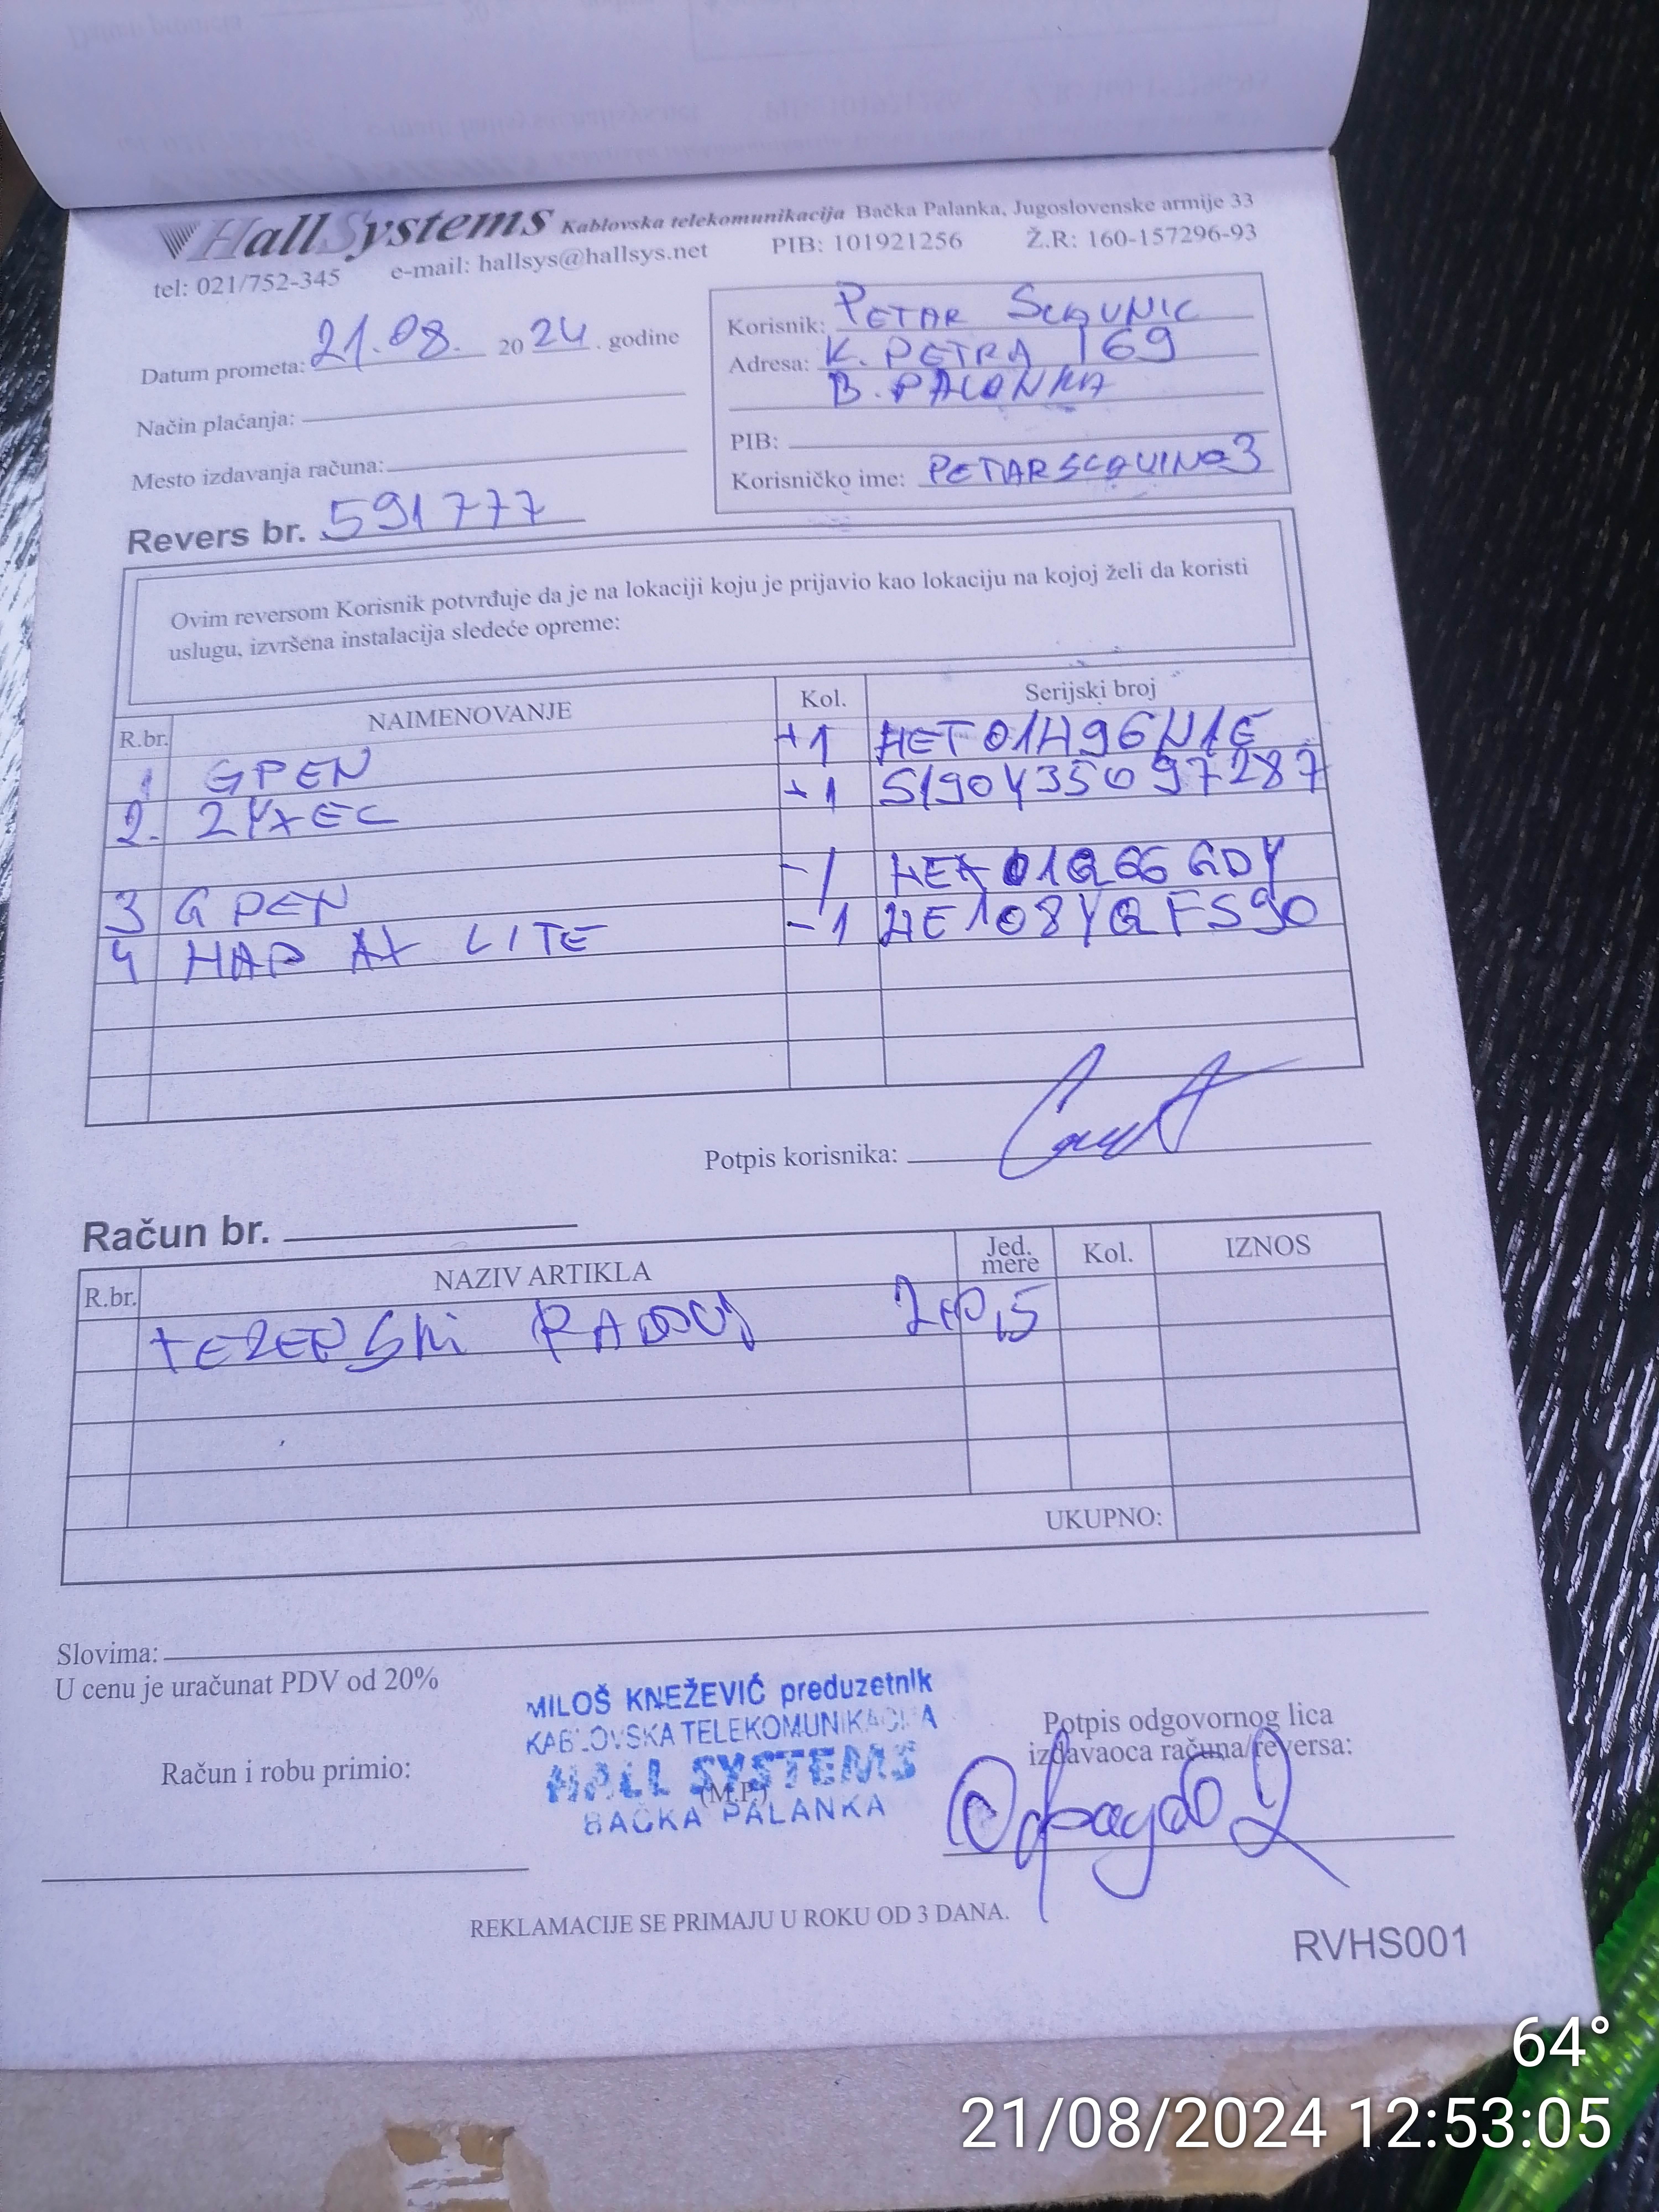 HallSystems Kablovska telekomunikacija Bačka Palanka, Jugoslovenske armije 33
tel: 021/752-345 e-mail: hallsys@hallsys.net PIB: 101921256 Ž.R: 160-157296-93
Datum prometa: 21.08. 2024. godine
Način plaćanja:
Mesto izdavanja računa:
Revers br. 591777
Korisnik: PETAR
Adresa: K. PETRA 169
B. PALANKA
PIB:
Korisničko ime:
Ovim reversom Korisnik potvrđuje da je na lokaciji koju je prijavio kao lokaciju na kojoj želi da koristi
uslugu, izvršena instalacija sledeće opreme:
R.br. NAIMENOVANJE Kol. Serijski broj
1 GPEN +1 HET01H96N1E
2. ZYXEL +1 S190Y35097287
3 GPEN -1
4 HAP AX LITE -1 HE108YQFS90
Potpis korisnika:
Račun br.
R.br. NAZIV ARTIKLA Jed. mere Kol. IZNOS
TERENSKI RADOVI
UKUPNO:
Slovima:
U cenu je uračunat PDV od 20%
MILOŠ KNEŽEVIĆ preduzetnik
KABLOVSKA TELEKOMUNIKACIJA
HALL SYSTEMS
BAČKA PALANKA
Račun i robu primio:
(M.P.)
Potpis odgovornog lica
izdavaoca računa/reversa:
REKLAMACIJE SE PRIMAJU U ROKU OD 3 DANA.
RVHS001
64°
21/08/2024 12:53:05